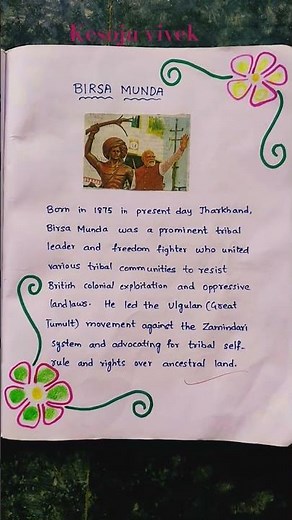 Kesoju vivek
BIRSA MUNDA
Born in 1875 in present day Jharkhand,
Birsa Munda was a prominent tribal
leader and freedom fighter who united
various tribal communities to resist
British colonial exploitation and oppressive
land laws. He led the Ulgulan (Great
Tumult) movement against the Zamindari
system and advocating for tribal self-
rule and rights over ancestral land.